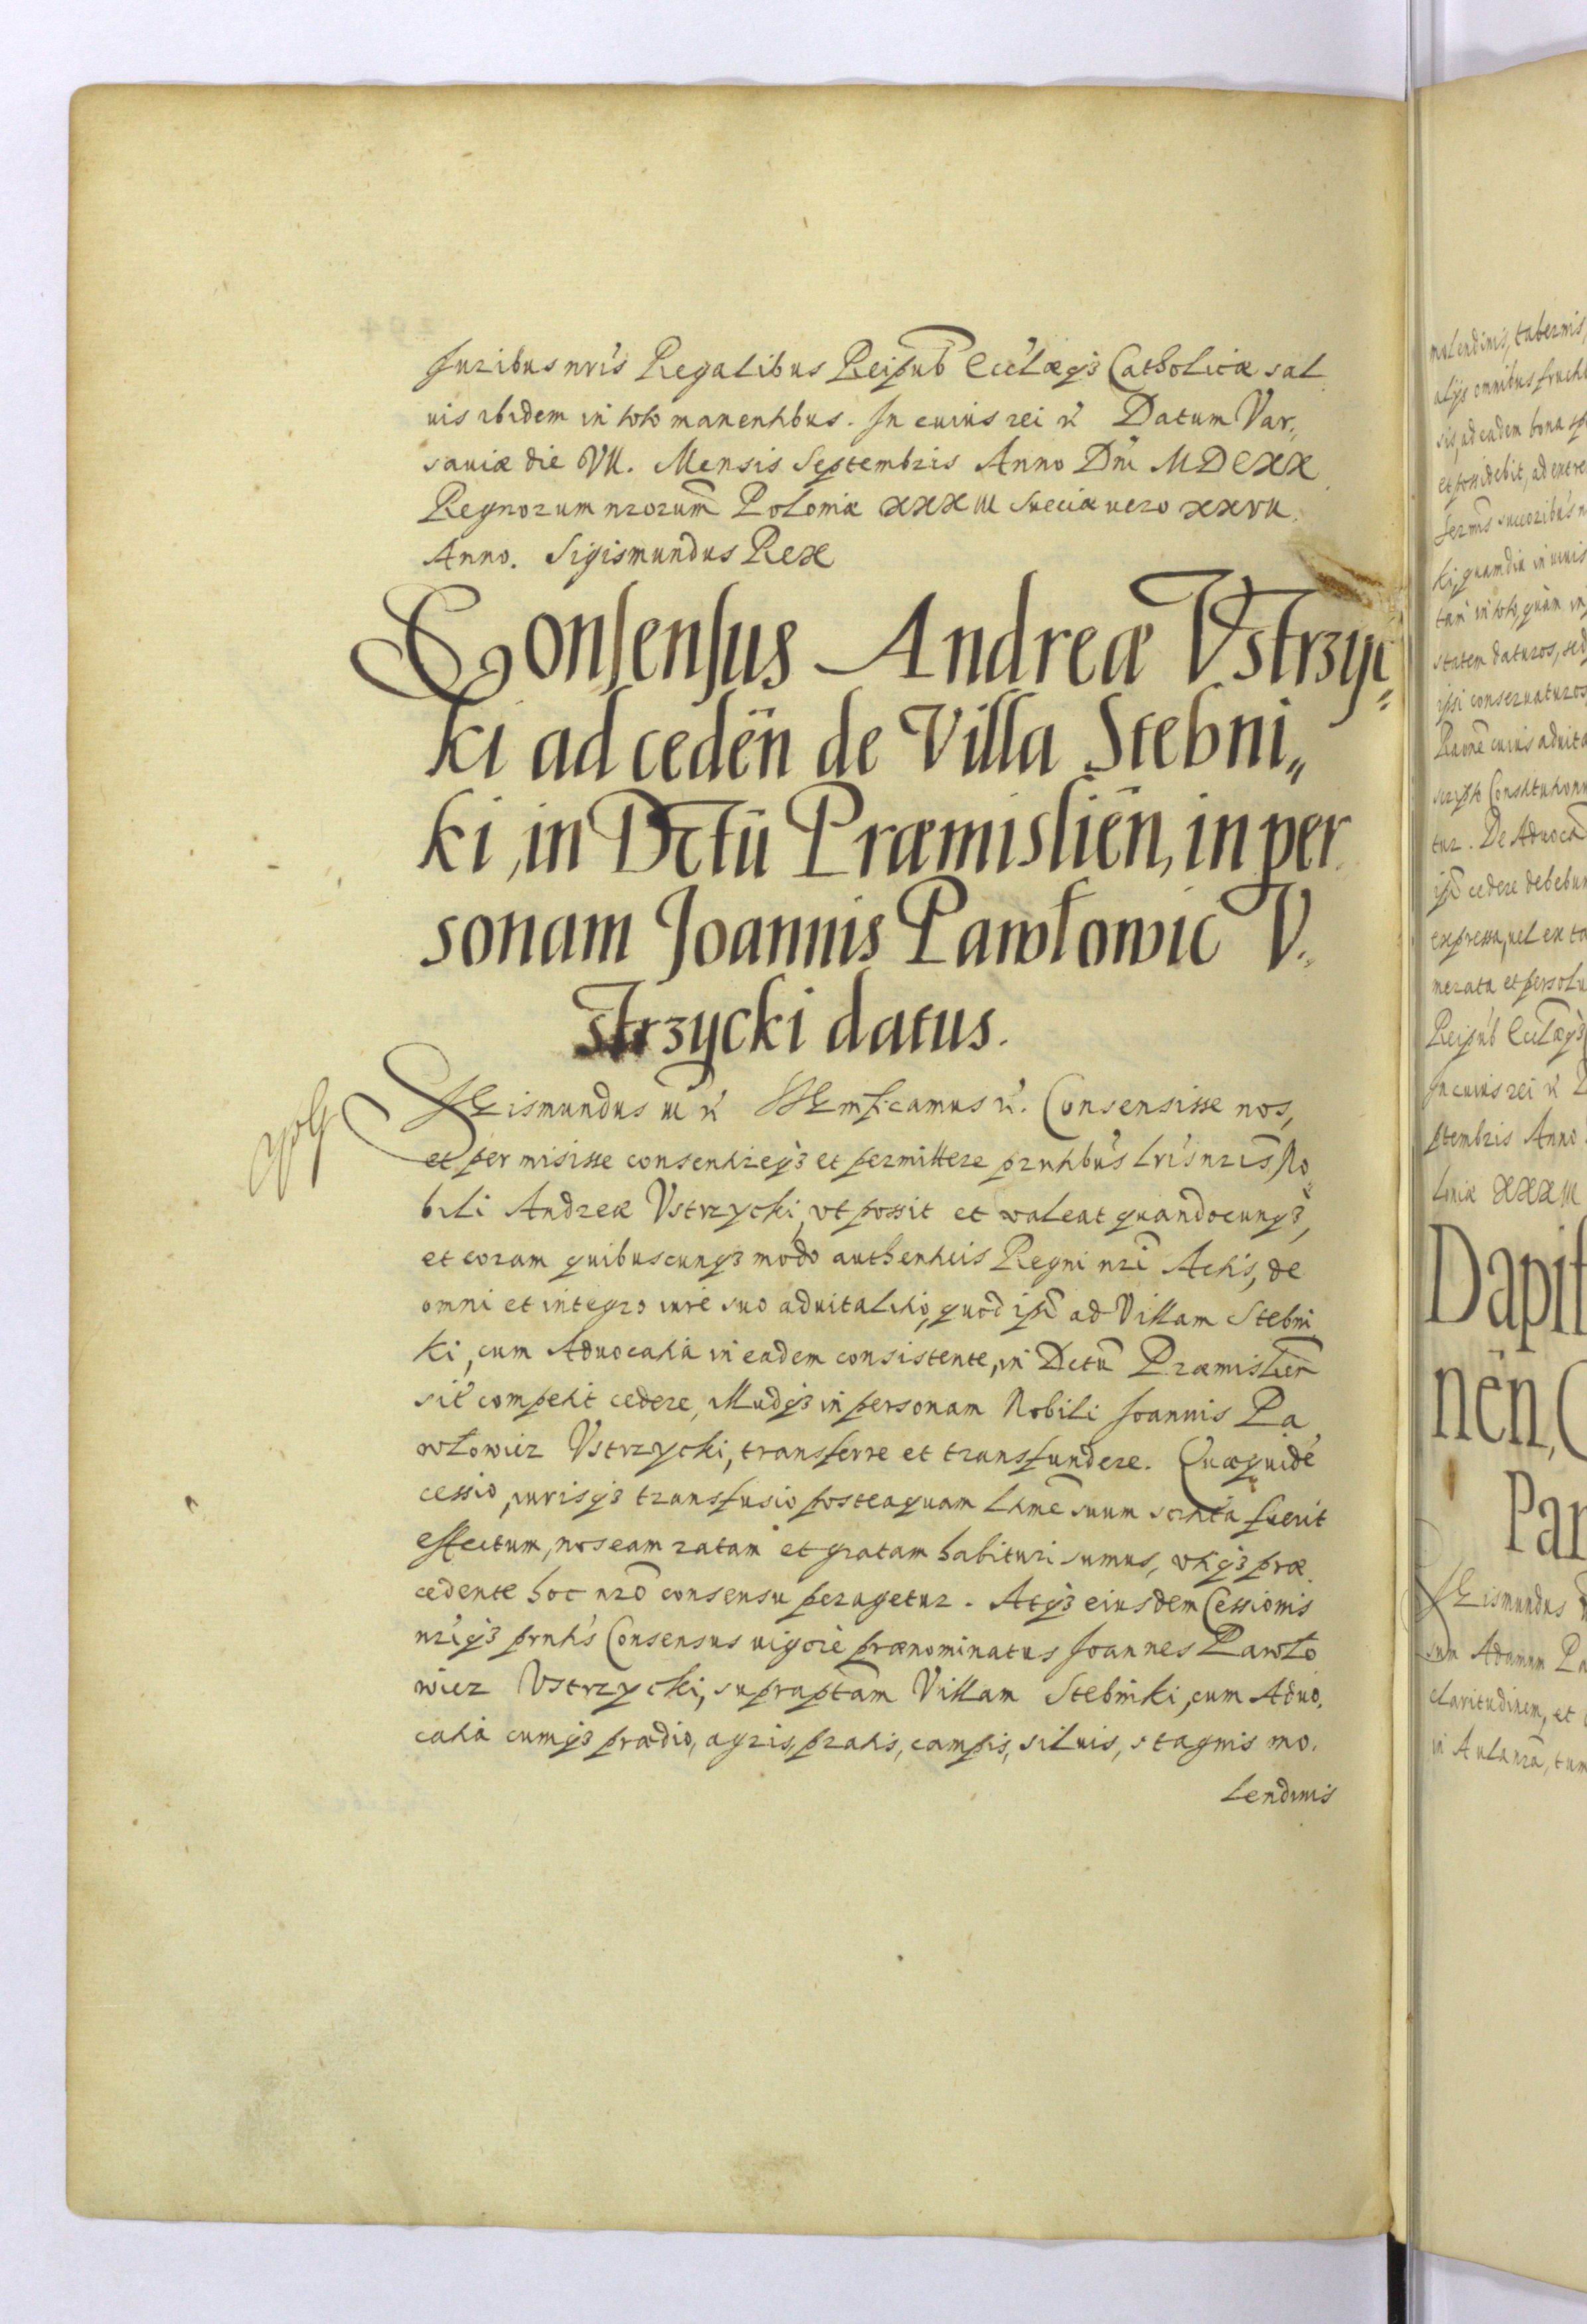 Juribus nr̃is Regalibus Reipub̃ Eccl̃æqȝ Catholicæ sal
uis ibidem in toto manentibus. In cuius rei &̃ Datum Var„
sauiæ die VII. Mensis Septembris Anno Dñi MDCXX
Regnorum nrorum̃ Poloniæ XXXIII Sueciæ uero XXVII.
Anno. Sigismundus Rex
Consensus Andreæ Vstrzyc„
ki ad cedeñ de Villa Stebni„
ki, in Dctũ Præmislieñ, in per
sonam Joannis Pawłowic V.
strzycki datus.
SIGismundus III &̃ SIGnificamus &̃. Consensisse nos,
et per misisse consentireqȝ et permittere prntibũs lrĩs nris̃ No
bili Andreæ Vstrzycki, vt possit et valeat quandocunqȝ,
et coram quibuscunqȝ modo authenticis Regni nrĩ Actis, de
omni et integro iure suo aduitalitio, quod ipsĩ ad Villam Stebni
ki, cum Aduocatia in eadem consistente, in Dctũ Præmislieñ
sit̃ competit cedere, illudqȝ in personam Nobili Joannis Pa
włowicz Vstrzycki, transferre et transfundere. Quæquidẽ
cessio, iurisqȝ transfusio posteaquam ltimẽ suum sortita fuerit
effectum, nos eam ratam et gratam habituri sumus, vtiqȝ præ
cedente hoc nrõ consensu peragetur. Atqȝ eiusdem Cessionis
nrĩqȝ prntĩs Consensus uigore prænominatus Joannes Pawło
wicz Vstrzycki, supraptam̃ Villam Stebniki, cum Aduo.
catia cumqȝ prædio, agris, pratis, campis, siluis, stagnis mo.
lendinis
molendinis, tabernis,
alijs omnibus fructi
sis, ad eadem bona sp
et possidebit, ad extre
ki, quamdiu in uiuis
tam in toto, quàm in
statem daturos, sed
ipsi conseruaturos
tur. De Aduocã
ipsĩ cedere debebun
expressa, uel ex ta
nerata et persolu
Reipub̃ Eccl̃æqȝ
In cuius rei &̃ D
ptembris Anno
loniæ XXXIII
Dapif
neñ, C
Par
SIGismundus
sum Adamum Pa
claritudinem, et
in Aula nrã, tum